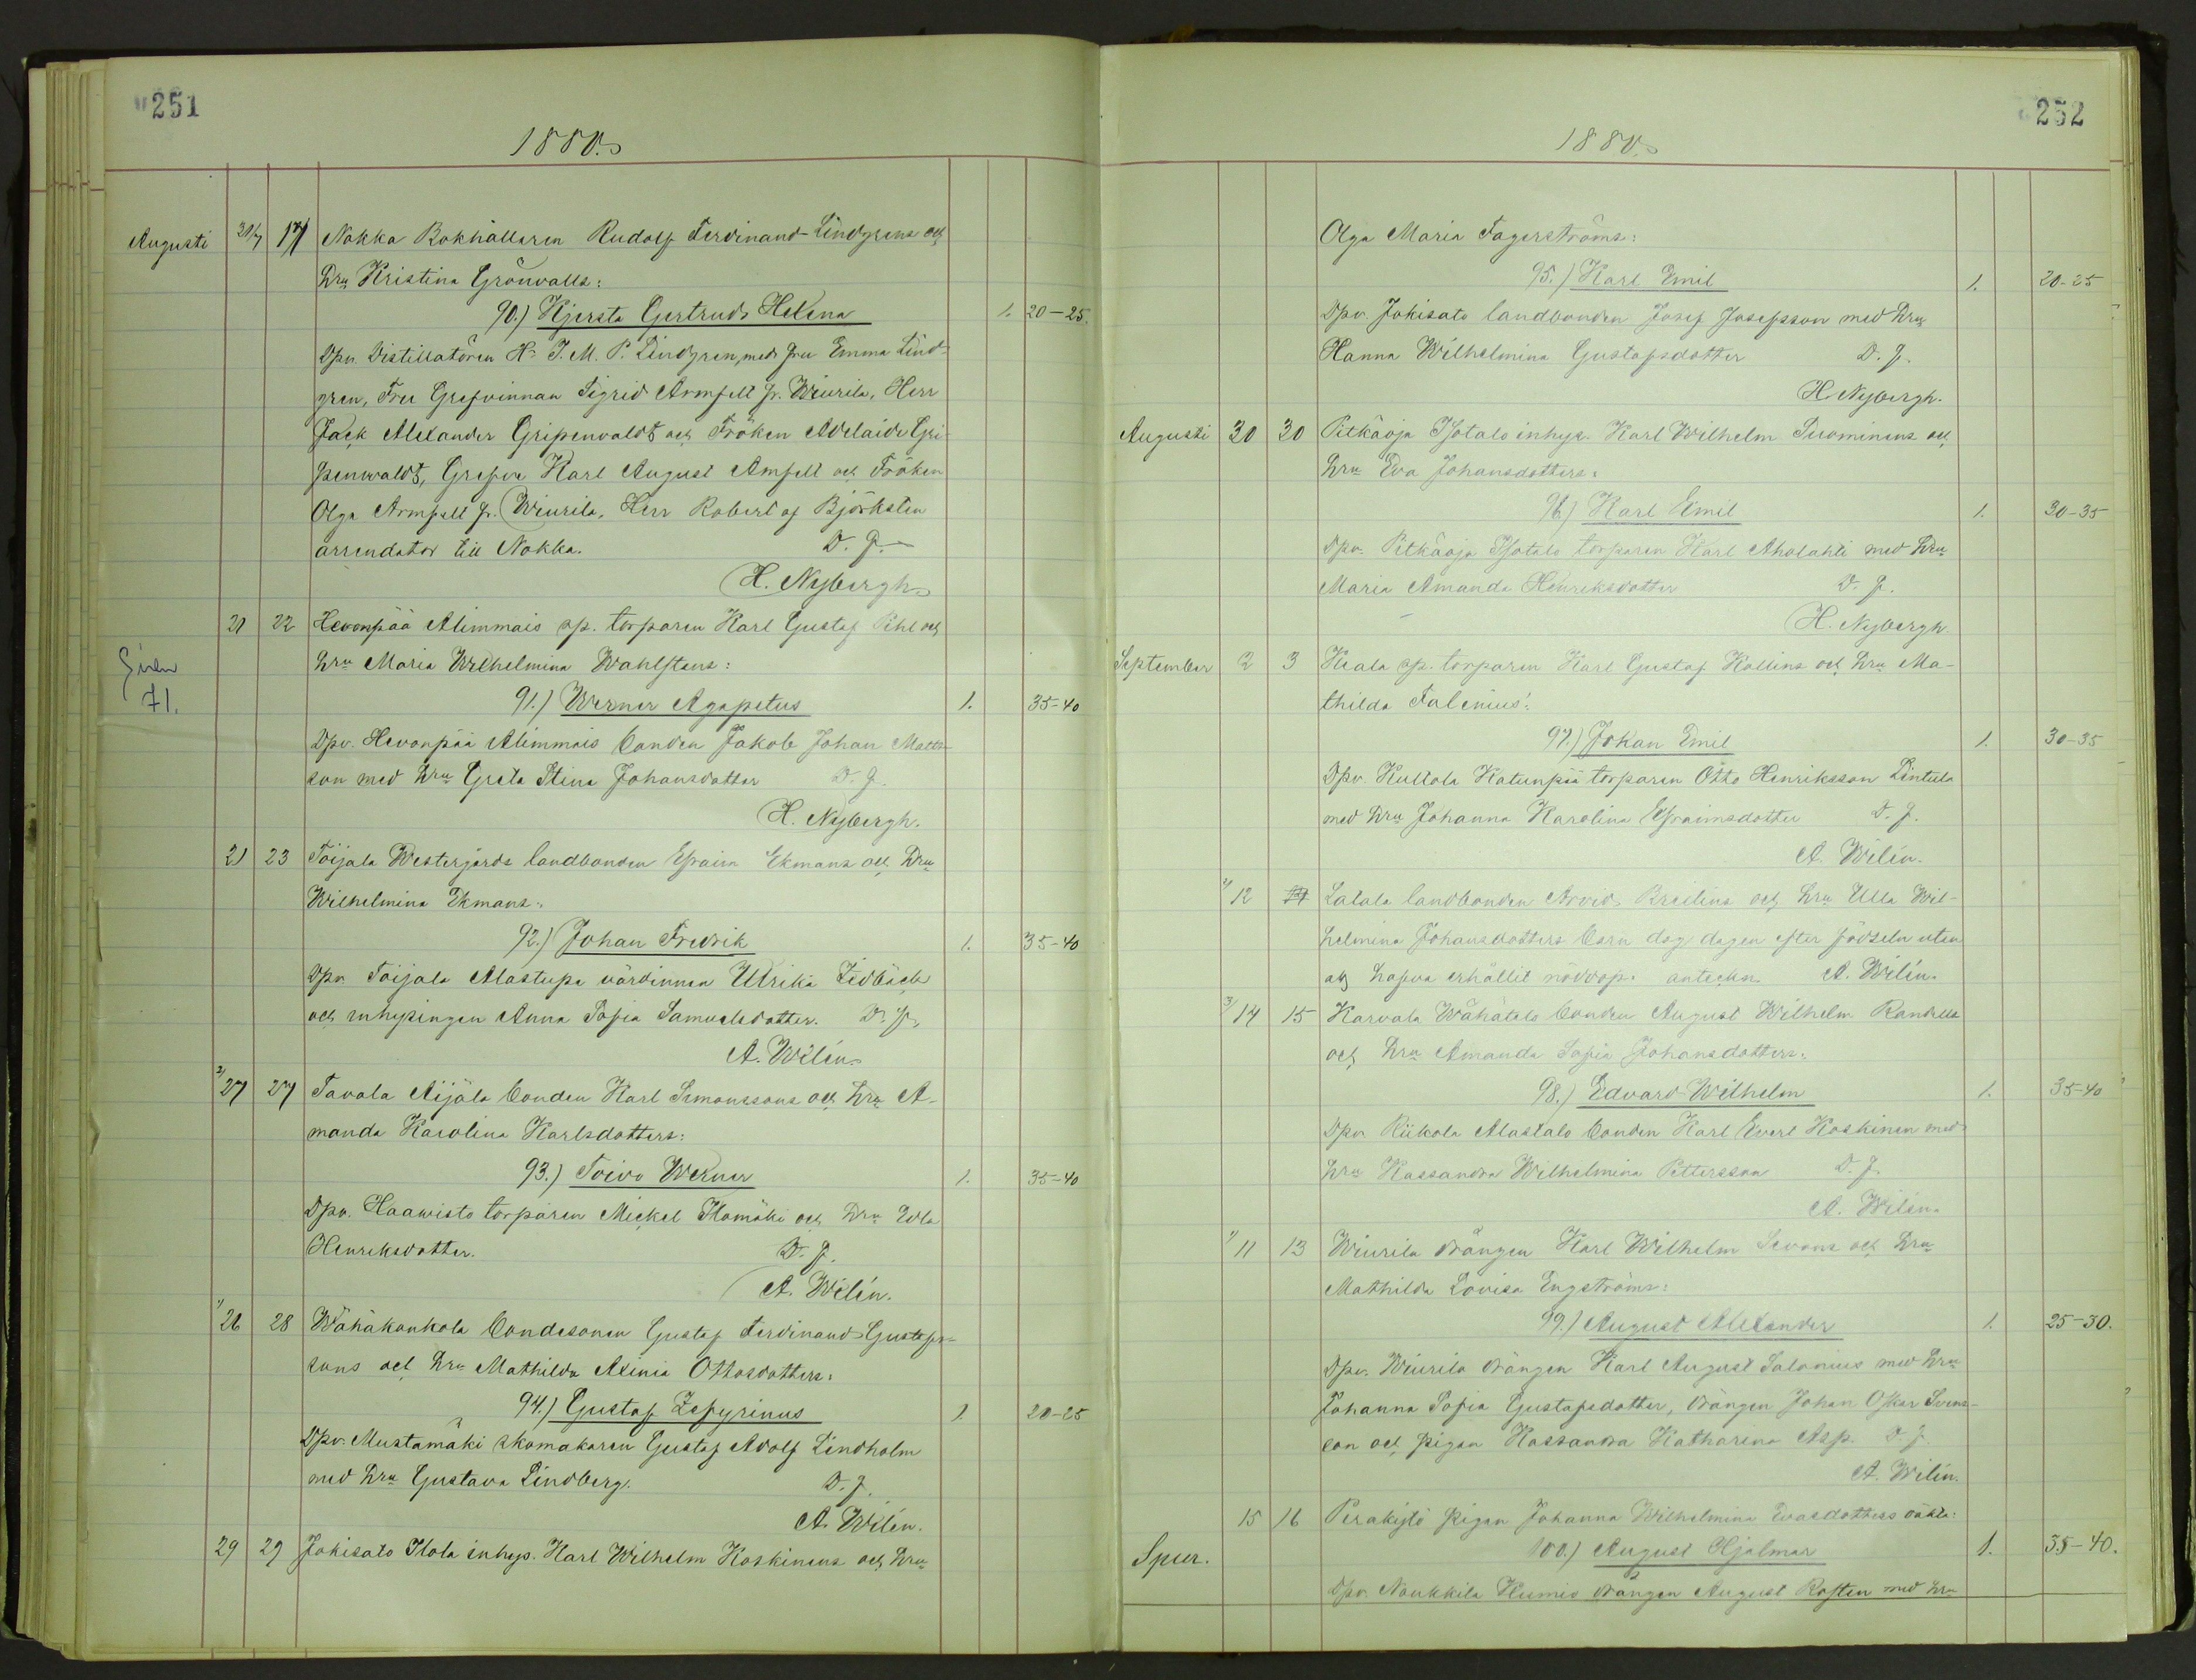 251
1880.
Augusti 17 Nokka Bokhållaren Rudolf Ferdinand Lindgrens och
hru Kristina Grönvalls:
90.) Kjersta Gertruds Helena 1. 20-25.
Dpv. Distillatören Hr J. M. P. Lindgren, med fru Emma Lind-
gren, Fru Grefvinnan Sigrid Armfelt fr. Wiurila, Herr
Jack Alexander Gripenvaldt och Fröken Adelaide Gri-
penwaldt, Grefve Karl August Amfelt och Fröken
Olga Armfelt fr. Wiurila, Herr Robert af Björksten
arrendator till Nokka. D. J.
H. Nybergh.
21 22 Hevonpää Alimmais sp. torparen Karl Gustaf Pihl och
hru Maria Wilhelmina Wahlstens:
71.
91.) Werner Agapetus 1. 35-40
Dpv. Hevonpää Alimmais bonden Jakob Johan Matts-
son med hru Greta Stina Johansdotter D. J.
H. Nybergh.
21 23 Toijala Westergårds landbonden Efraim Ekmans och hru
Wilhelmina Ekmans:
92.) Johan Fredrik 1. 35-40
Dpv. Toijala Alastupa värdinnan Ulrika Lidbäck
och inhysingen Anna Sofia Samuelsdotter. D. J.
A. Wilén.
2/27 27 Tavola Äijälä bonden Karl Simonssons och hru A-
manda Karolina Karlsdotters:
93.) Toivo Werner 1. 35-40
Dpv. Haawisto torparen Mickel Ilomäki och hru Edla
Henriksdotter. D. J.
A. Wilén.
1/26 28 Wähäkonkola bondesonen Gustaf Ferdinand Gustafs-
sons och hru Mathilda Axinia Ottosdotters:
94.) Gustaf Zefyrinus 1. 20-25
Dpv. Mustamäki skomakaren Gustaf Adolf Lindholm
med hru Gustava Lindberg. D. J.
A. Wilén.
29 29 Jokisato Ilola inhys. Karl Wilhelm Koskinens och hru
252
1880.
Olga Maria Fagerströms:
95.) Karl Emil 1. 20-25
Dpv. Jokisato landbonden Josef Josefsson med hru
Hanna Wilhelmina Gustafsdotter D. J.
H. Nybergh.
Augusti 30 30 Pitkäoja Isotalo inhys. Karl Wilhelm Tuominens och
hru Eva Johansdotters:
96.) Karl Emil 1. 30-35
Dpv. Pitkäoja Isotalo torparen Karl Aholahti med hru
Maria Amanda Henriksdotter D. J.
H. Nybergh.
September 2 3 Keala sp. torparen Karl Gustaf Kallins och hru Ma-
thilda Falenius:
97.) Johan Emil 1. 30-35
Dpv. Kullola Katunpää torparen Otto Henriksson Lintula
med hru Johanna Karolina Efraimsdotter D. J.
A. Wilén.
2/12 Lalala landbonden Arvid Breilins och hru Ulla Wil-
helmina Johansdotters barn dog dagen efter födseln utan
att hafva erhållit nöddop. anteckn. A. Wilén.
3/14 15 Karvala Wähätalo bonden August Wilhelm Randells
och hru Amanda Sofia Johansdotters:
98.) Edvard Wilhelm 1. 35-40
Dpv. Riikola Alastalo bonden Karl Evert Koskinen med
hru Kassandra Wilhelmina Pettersson D. J.
A. Wilén.
1/11 13 Wiurila drängen Karl Wilhelm Sevons och hru
Mathilda Lovisa Engströms:
99.) August Alexander 1. 25-30.
Dpv. Wiurila drängen Karl August Salonius med hru
Johanna Sofia Gustafsdotter, drängen Johan Oskar Svens-
son och pigan Kassandra Katharina Asp. D. J.
A. Wilén.
15 16 Perakylö pigan Johanna Wilhelmina Evasdotters oäkta:
Spur. 100.) August Hjalmar 1. 35-40.
Dpv. Naukkila Kumio drängen August Rosten med hru